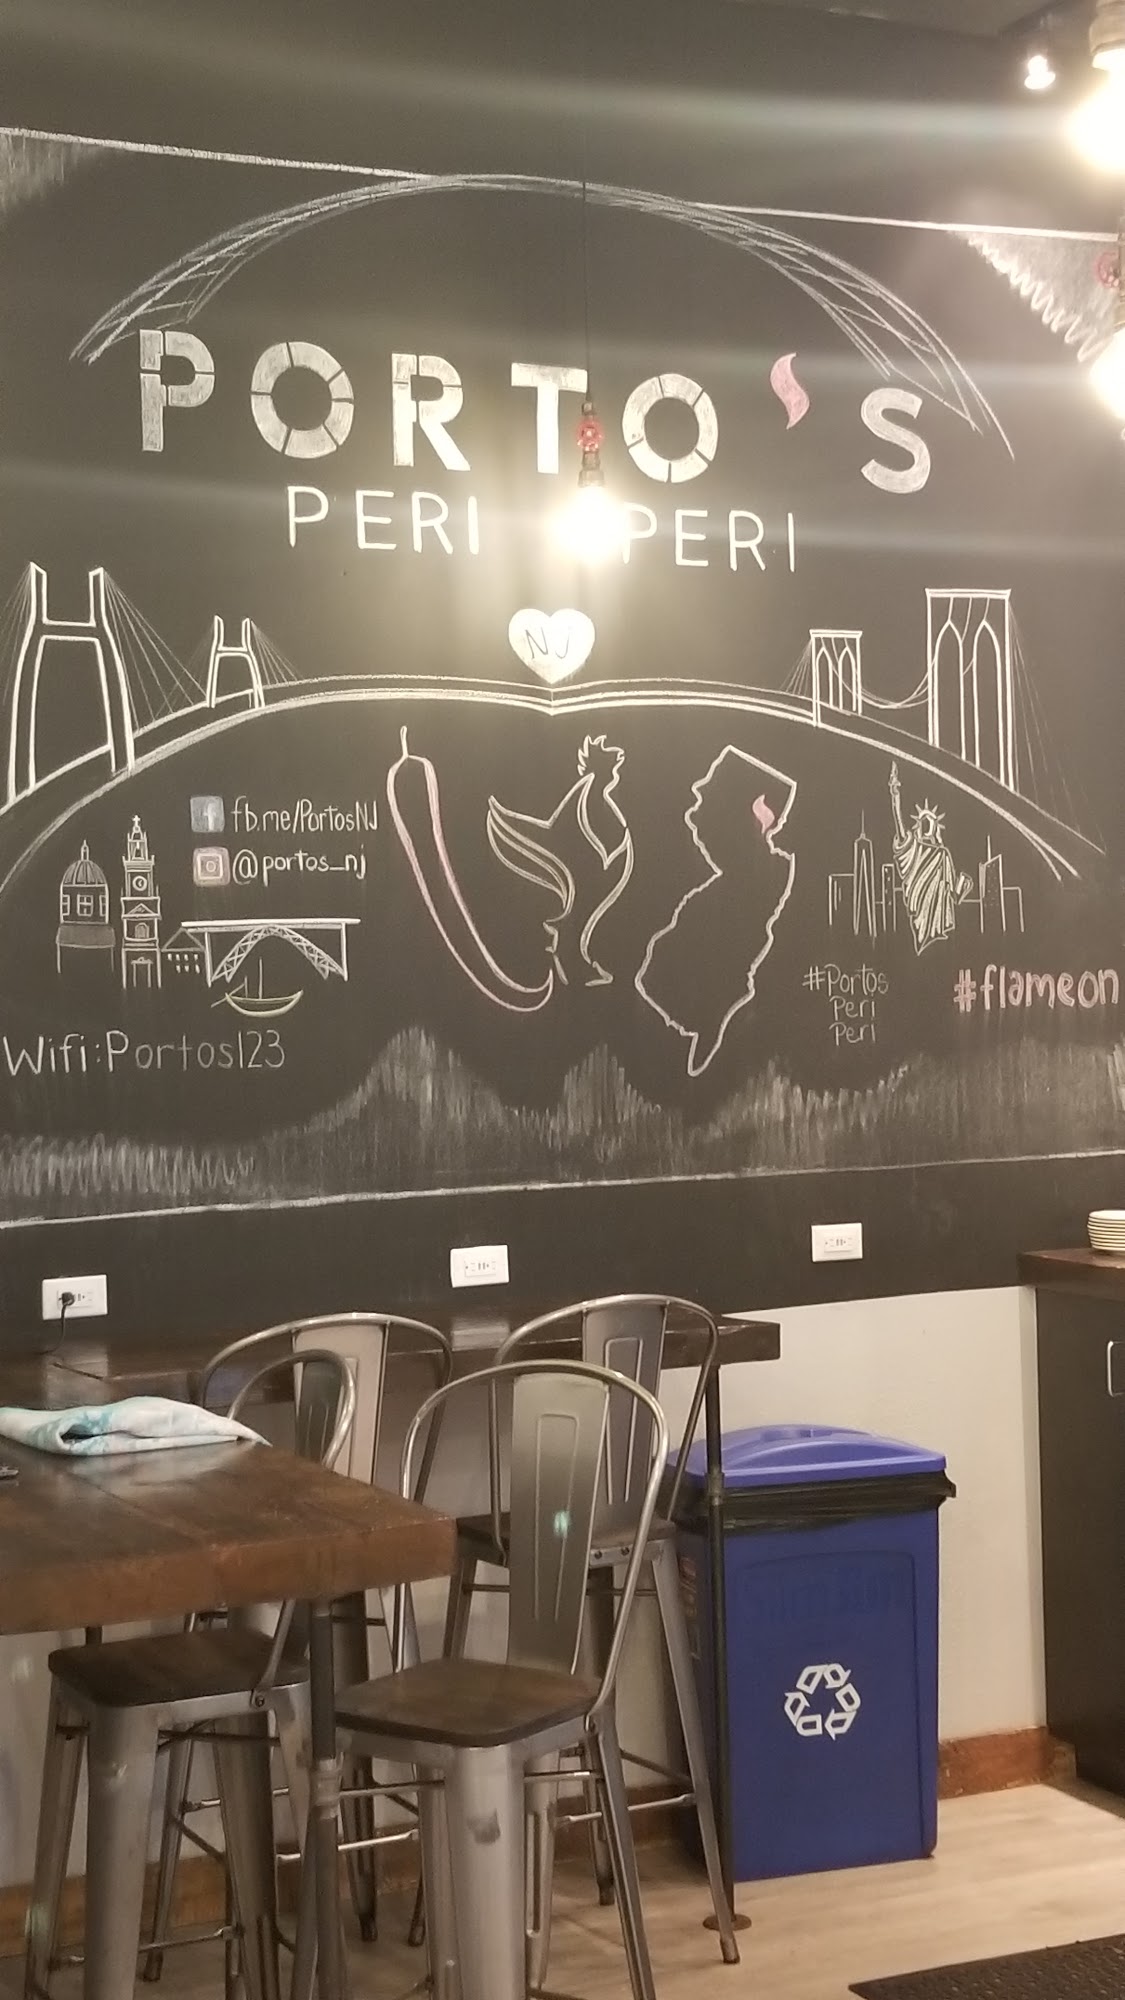 PORTO'S
PERI PERI
NJ
fb.me/PortosNJ
@portos_nj
#Portos
Peri
Peri
#flameon
Wifi:Portos123